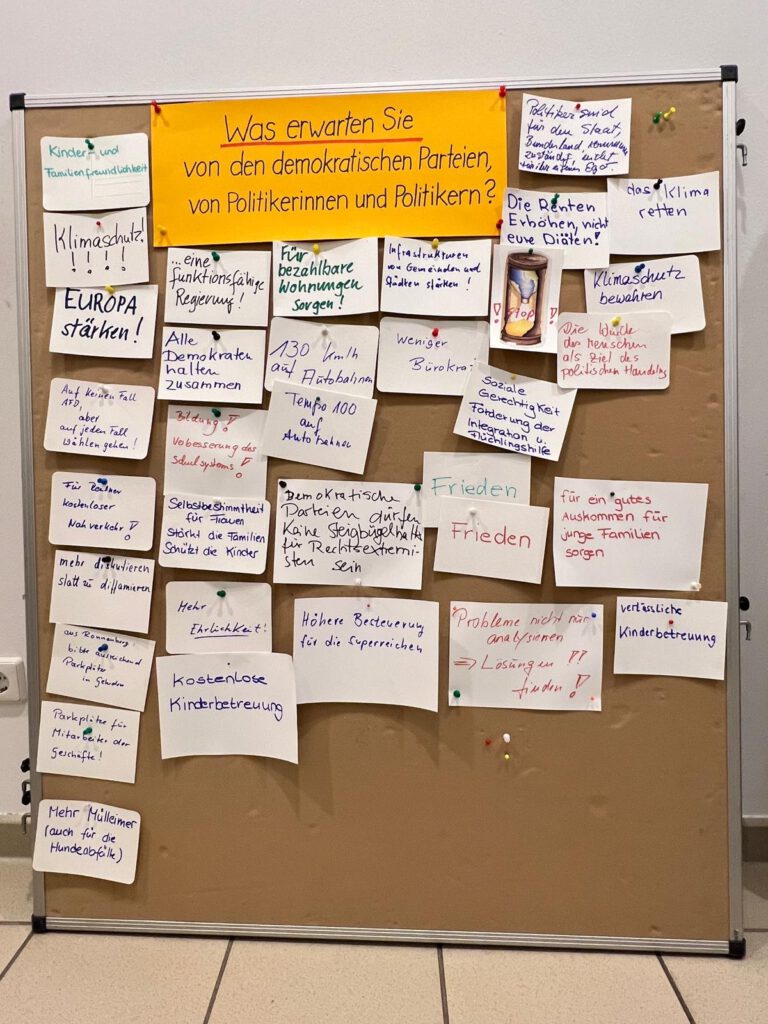 Was erwarten Sie
von den demokratischen Parteien,
von Politikerinnen und Politikern?
Politiker sind
für den Staat,
Bundesland,
zuständig, nicht
Ego!
Kinder- und
Familienfreundlichkeit
Die Renten
Erhöhen, nicht
eure Diäten!
das Klima
retten
Klimaschutz!
! ! ! !
...eine
funktionsfähige
Regierung!
Für
bezahlbare
Wohnungen
sorgen!
Infrastrukturen
von Gemeinden und
Städten stärken!
! Stop !
Klimaschutz
bewahren
EUROPA
stärken!
Alle
Demokraten
halten
zusammen
130 km/h
auf Autobahnen
Weniger
Bürokra
Die Würde
des Menschen
als Ziel des
politischen Handelns
Auf keinen Fall
AFD,
aber
auf jeden Fall
wählen gehen!
Bildung!
Vebesserung des
Schulsystems!
Tempo 100
auf
Autobahnen
Soziale
Gerechtigkeit
Förderung der
Integration u.
Flüchlingshilfe
Für Rentner
kostenloser
Nahverkehr!
Selbstbestimmtheit
für Frauen
Stärkt die Familien
Schützt die Kinder
Demokratische
Parteien dürfen
Keine Steigbügelhalter
für Rechtsextremi-
sten sein
Frieden
Frieden
für ein gutes
Auskommen für
junge Familien
sorgen
mehr diskutieren
statt zu diffamieren
Mehr
Ehrlichkeit!
Höhere Besteuerung
für die Superreichen
Probleme nicht nur
analysieren
⇒ Lösungen !!
finden!
verlässliche
Kinderbetreuung
aus Ronnenberg:
bitte ausreichend
Parkplätze
in Gehrden
Kostenlose
Kinderbetreuung
Parkplätze für
Mitarbeiter der
Geschäfte!
Mehr Mülleimer
(auch für die
Hundeabfälle)